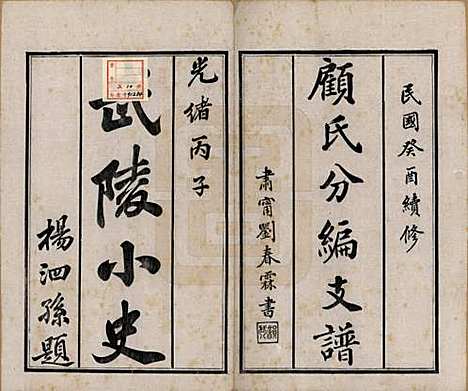 民國癸酉續修
顧氏分編支譜
肅甯劉春霖書
光緒丙子
武陵小史
楊泗孫題